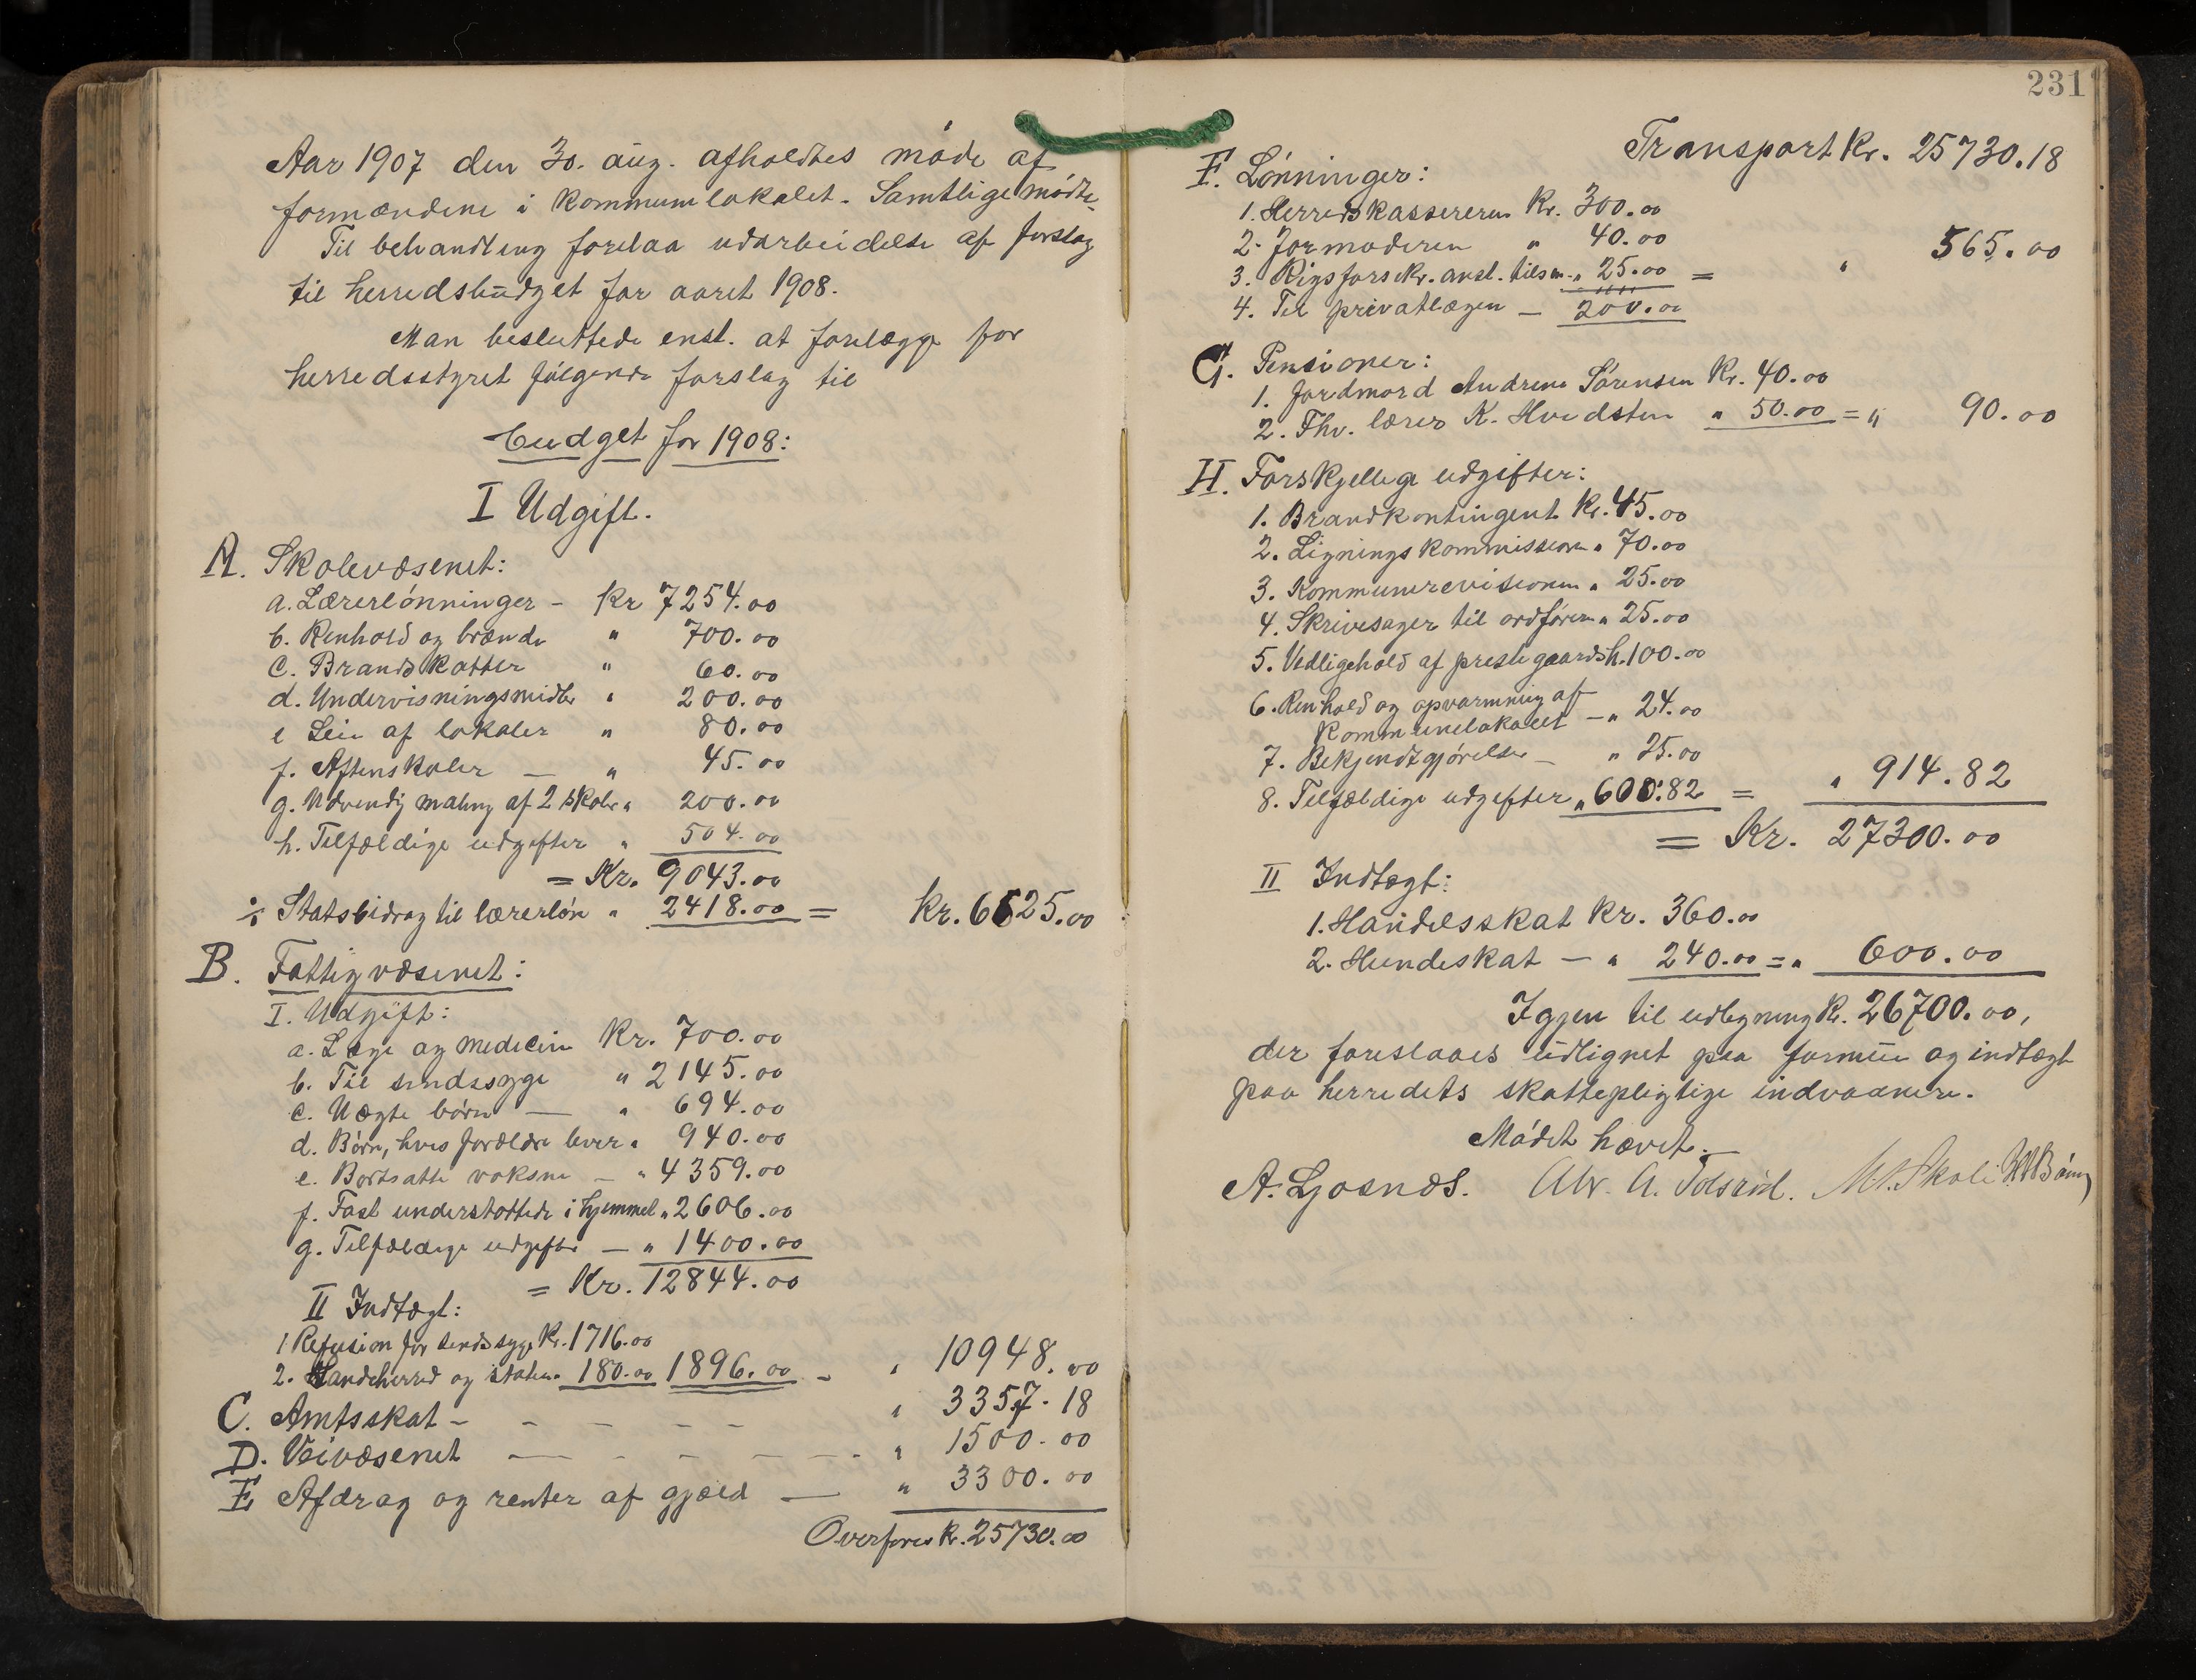 Aar 1907 den 30. aug. afholdtes møde af
formændene i kommunelokalet. Samtlige mødte.
Til behandling forelaa udarbeidelse af forslag
til herredsbudget for aaret 1908.
Man besluttede enst. at forelægge for
herredsstyret følgende forslag til
budget for 1908:
I Udgift.
A. Skolevæsenet:
a. Lærerlønninger - Kr 7254.00
b. Renhold og brænde " 700.00
c. Brandskatter " 60.00
d. Undervisningsmidler " 200.00
e Leie af lokaler " 80.00
f. Aftenskoler — " 45.00
g. Udvendig maling af 2 skoler " 200.00
h. Tilfældige udgifter " 504.00
= Kr. 9043.00
÷ Statsbidrag til lærerløn " 2418.00 = Kr. 6625.00
B. Fattigvæsenet:
I. Udgift:
a. Læge og medicin Kr. 700.00
b. Til sindssyge " 2145.00
c. Uægte børn — " 694.00
d. Børn, hvis forældre lever " 940.00
e. Bortsatte voksne — " 4359.00
f. Fast understøttede i hjemmet " 2606.00
g. Tilfældige udgifter — " 1400.00
= Kr. 12844.00
II Indtægt:
1 Refusion for sindssyge Kr. 1716.00
2. Landeherred og staten " 180.00 1896.00 - " 10948.00
C. Amtsskat - - - - - " 3357.18
D. Veivæsenet — - - - — - " 1500.00
E Afdrag og renter af gjæld — " 3300.00
Overføres Kr. 25730.00
231
Transport Kr. 25730.18
F. Lønninger:
1. Herredskassereren Kr. 300.00
2. Jormoderen " 40.00
3. Rigsforsekr. anst. tilsm. " 25.00 = " 565.00
4. Til privatlægen — 200.00
G. Pensioner:
1. Jordmord Andrene Sørensen Kr. 40.00
2. Fhv. lærer K. Hvedsten " 50.00 = " 90.00
H. Forskjellige udgifter:
1. Brandkontingent Kr. 45.00
2. Ligningskommissionen " 70.00
3. Kommunerevisionen " 25.00
4. Skrivesager til ordføreren " 25.00
5. Vedligehold af prestegaardsh. 100.00
6. Renhold og opvarmning af
Kommunelokalet — " 24.00
7. Bekjendtgjørelser — " 25.00
8. Tilfældige udgifter " 600.82 = " 914.82
= Kr. 27300.00
II Indtægt:
1. Handelsskat Kr. 360.00
2. Hundeskat — " 240.00 = " 600.00
Igjen til udligning Kr. 26700.00,
der foreslaaes udlignet paa formue og indtægt
paa herredets skattepligtige indvaanere.
Mødet hævet.
A. Ljosnæs. Alv. A. Tolsrød. M. Skoli